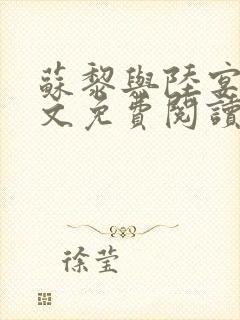 蘇黎與陸宴
文免費閱讀
徐莹